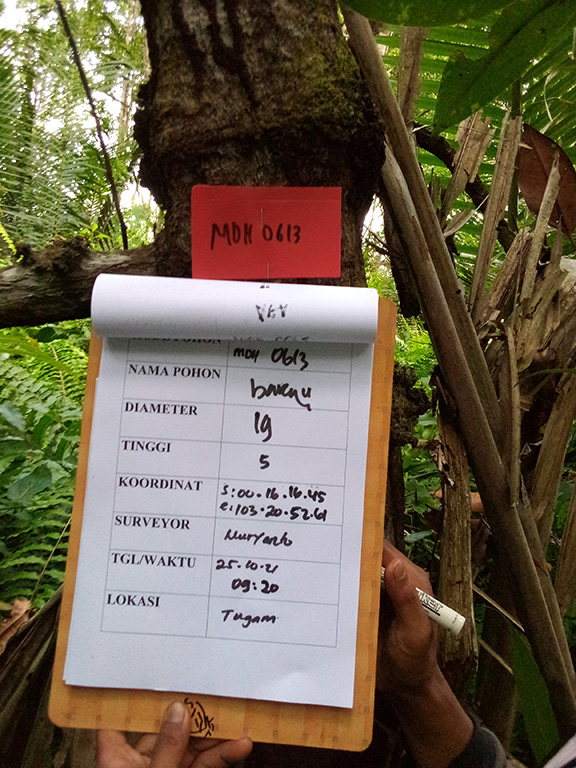 MDH 0613
MDH 0613
NAMA POHON
DIAMETER 19
TINGGI 5
KOORDINAT S:00.16.16.45
E:103.20.52.61
SURVEYOR Nuryanto
TGL/WAKTU 25.10.21
09:20
LOKASI Tugam